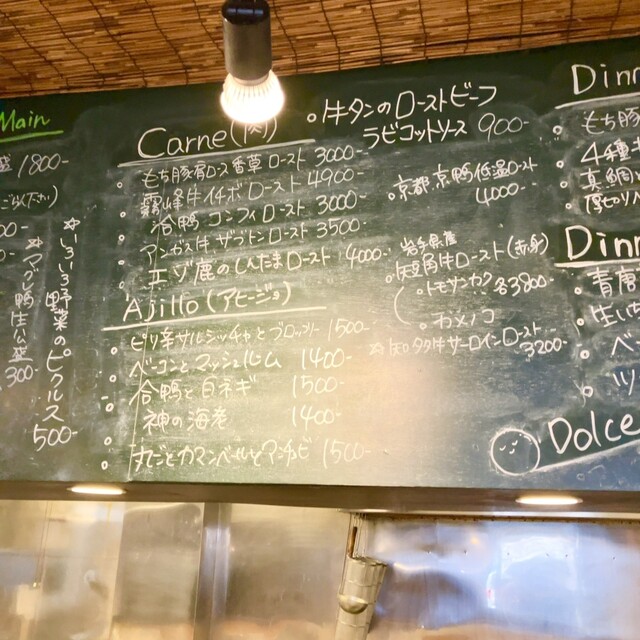 Main
1800-
ください)
いろいろ野菜のピクルス
500-
300-
Carne(肉)
もち豚肩ロース香草ロースト 3000-
霧峰牛イチボロースト 4900-
合鴨コンフィロースト 3000-
アンガス牛ザブトンロースト 3500-
エゾ鹿のしんたまロースト 4000-
Ajillo(アヒージョ)
ピリ辛サルシッチャとブロッコリー 1500-
ベーコンとマッシュルーム 1400-
合鴨と白ネギ 1500-
神の海老 1400-
丸ごとカマンベールとアンチョビ 1500-
牛タンのローストビーフ
ラビゴットソース 900-
京都京鴨低温ロースト
4000-
岩手県産
短角牛ロースト(赤身)
トモサンカク 各3800
カメノコ
サーロインロースト
3200-
Dinn
もち豚
4種
真鯛
厚切り
Dinn
青唐
生
ベ
ツ
Dolce